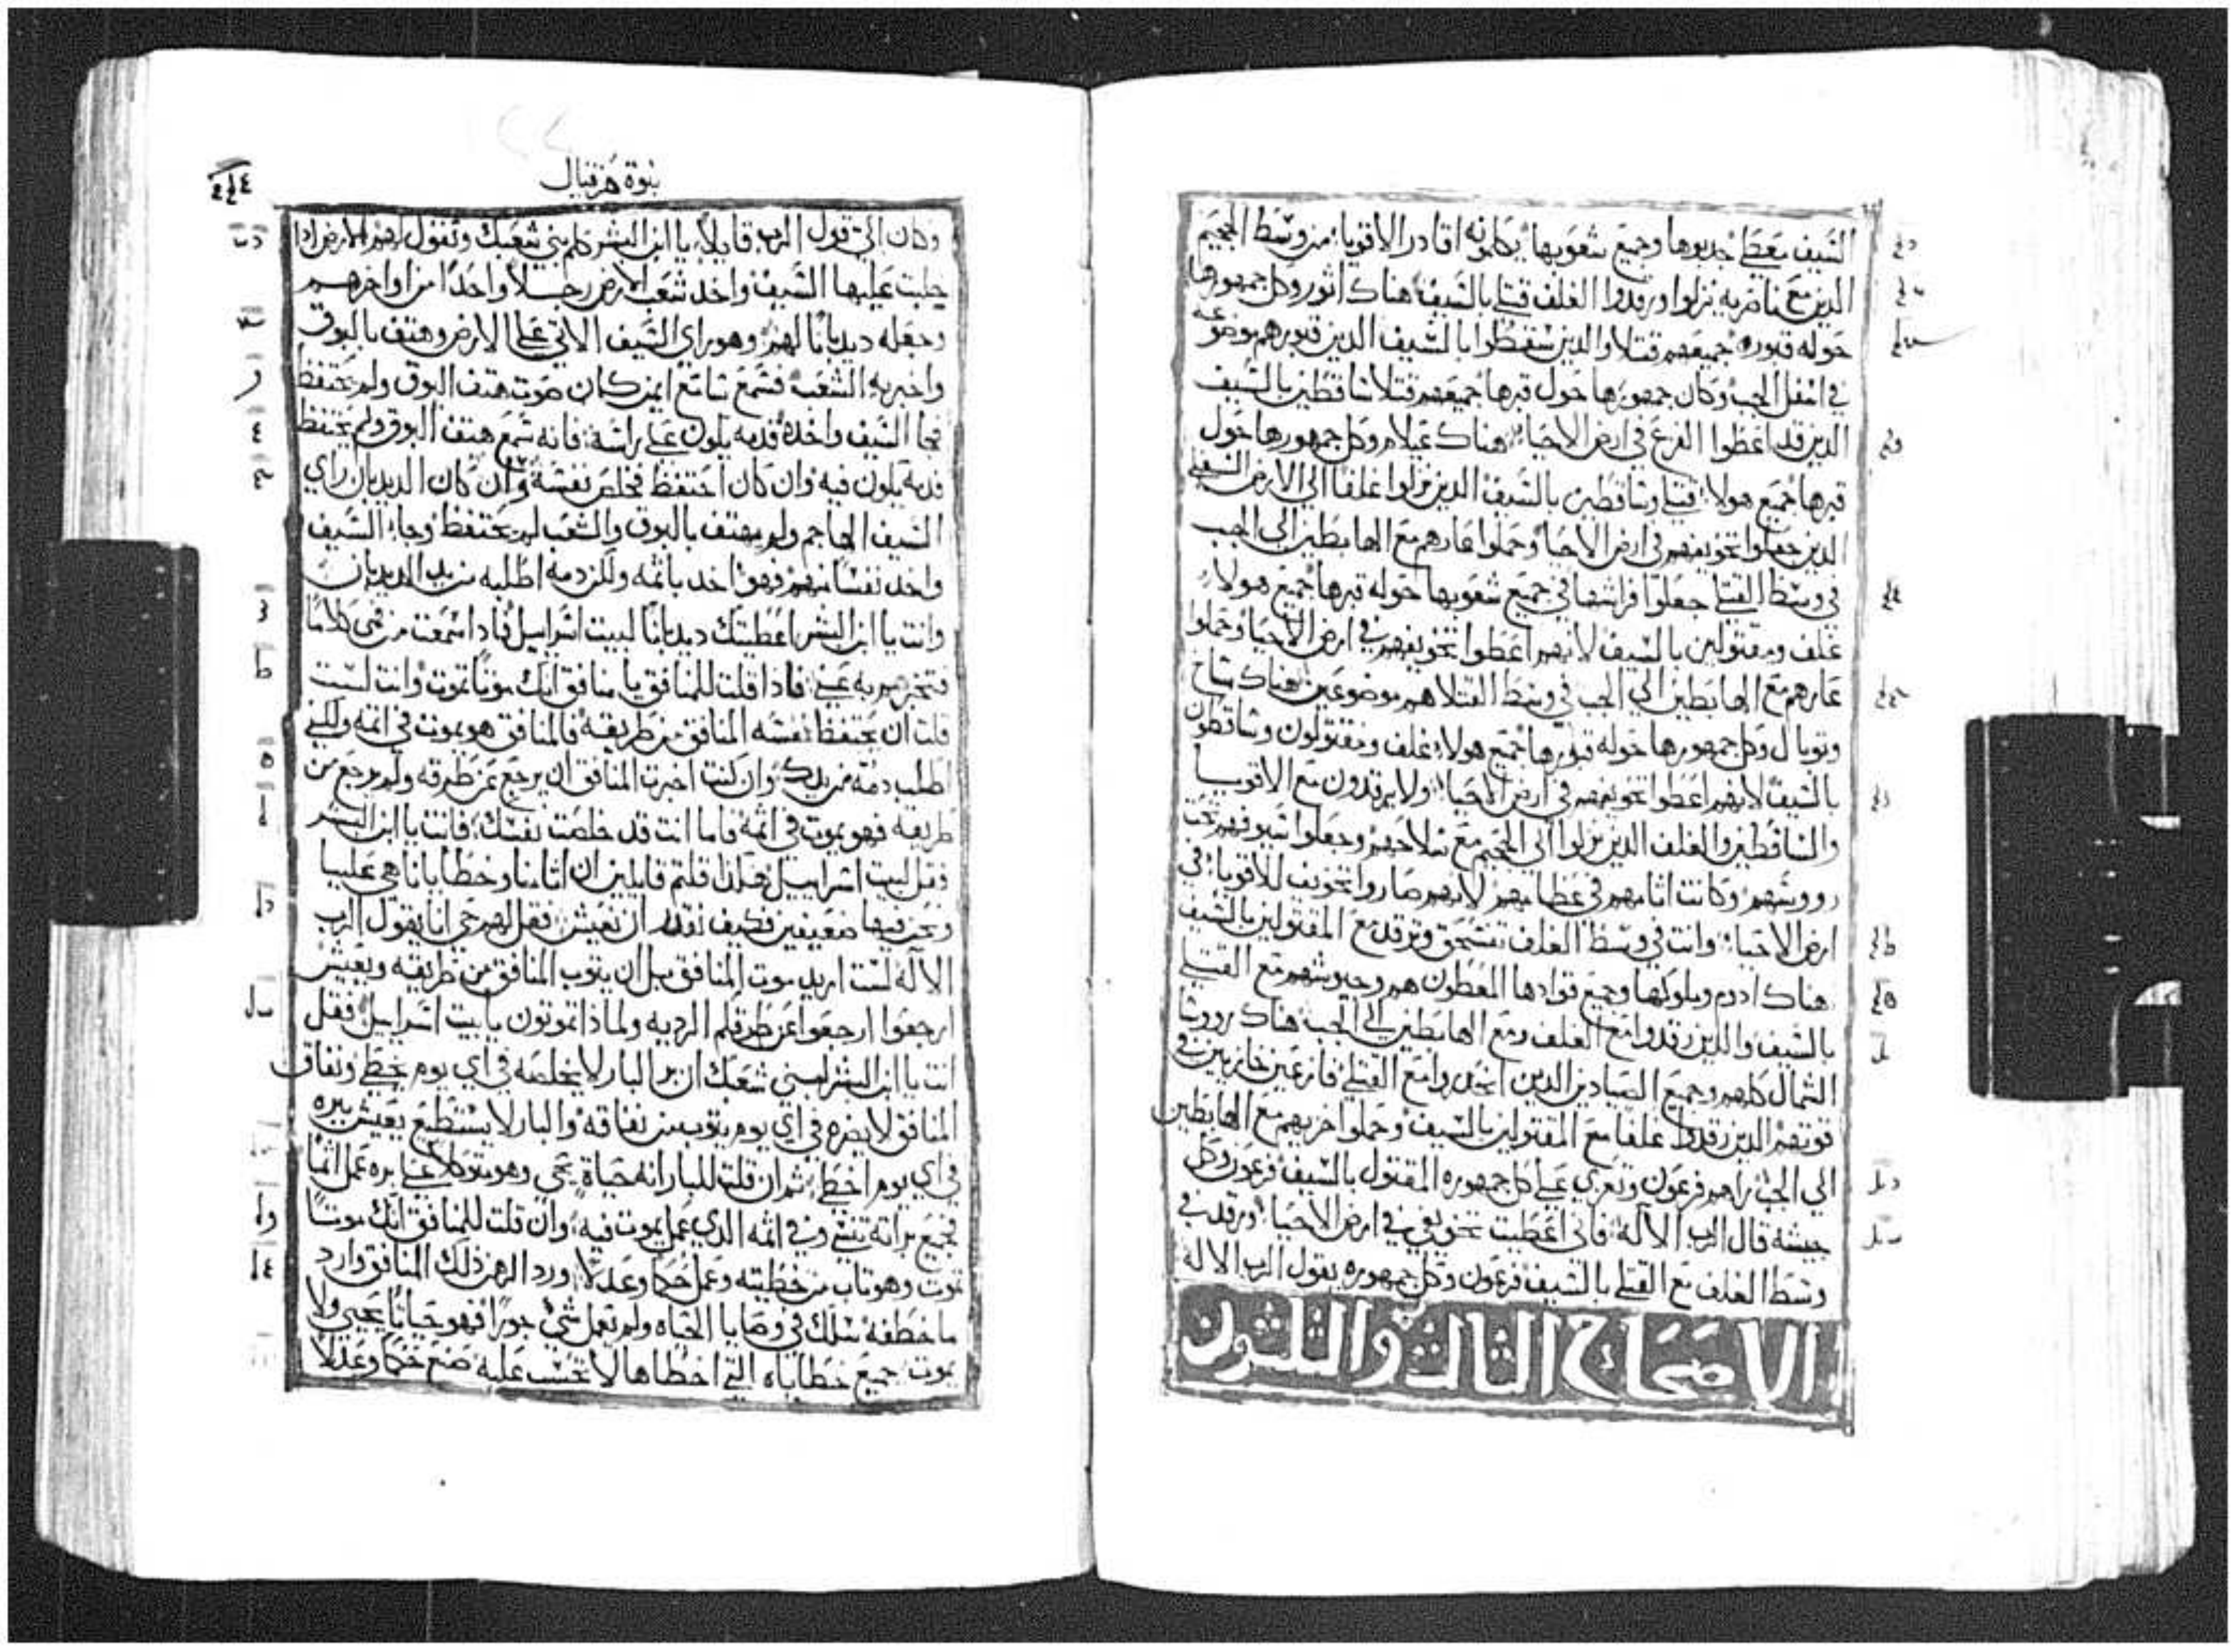 السيف معطى جدبوها وجميع شعوبها يكلمونه اقادر الاقوياء من وسط الجحيم
الذين مع ناصريه نزلوا ورقدوا الغلف قتلى بالسيف هناك اثور وكل جمهورها
حوله قبوره جميعهم قتلا والذين سقطوا بالسيف الذين قبورهم موضوعه
في اسفل الجب وكان جمهورها حول قبرها جميعهم قتلا ساقطين بالسيف
الذين قد اعطوا الفزع في ارض الاحياء هناك عيلام وكل جمهورها حول
قبرها جميع هولاء قتلى وساقطين بالسيف الذين نزلوا غلفا الى الارض السفلى
الذين جعلوا تخويفهم في ارض الاحيا وحملوا عارهم مع الهابطين الى الجب
في وسط القتلى جعلوا فراشها في جميع شعوبها حوله قبرها جميع هولاء
غلف ومقتولين بالسيف لانهم اعطوا تخويفهم في ارض الاحيا وحملوا
عارهم مع الهابطين الى الجب في وسط القتلا هم موضوعين هناك ماشاخ
وتوبال وكل جمهورها حوله قبورها جميع هولاء غلف ومقتولون وساقطون
بالسيف لانهم اعطوا تخويفهم في ارض الاحيا ولا يرقدون مع الاقويا
والساقطين والغلف الذين نزلوا الى الجحيم مع سلاحهم وجعلوا سيوفهم تحت
رووسهم وكانت اثامهم في عظامهم لانهم صاروا تخويف للاقوياء في
ارض الاحياء وانت في وسط الغلف تنسحق وترقد مع المقتولين بالسيف
هناك ادوم وملوكها وجميع قوادها المعطون هم وجيوشهم مع القتلى
بالسيف والذين رقدوا مع الغلف ومع الهابطين الى الجب هناك رووسا
الشمال كلهم وجميع الصيادين الذين انحدروا مع القتلى فازعين خازيين في
قوتهم الذين رقدوا غلفا مع المقتولين بالسيف وحملوا خزيهم مع الهابطين
الى الجب راهم فرعون وتعزي على كل جمهوره المقتول بالسيف فرعون وكل
جيشه قال الرب الاله فاني اعطيت تخويفي في ارض الاحياء ورقد في
وسط الغلف مع القتلى بالسيف فرعون وكل جمهوره يقول الرب الاله
الاصحاح الثالث والثلثون
نبوة حزقيال
وكان الي قول الرب قايلا يا ابن البشر كلم بني شعبك وتقول لهم الارض اذا
جلبت عليها السيف واخذ شعب الارض رجلا واحدا من اواخرهم
وجعله ديدبانا لهم وهو راي السيف الاتي على الارض وهتف بالبوق
واخبر به الشعب فسمع سامع ايمن كان صوت هتف البوق ولم يحتفظ
فجا السيف واخذه فدمه يكون على راسه فانه سمع هتف البوق ولم يحتفظ
فدمه يكون فيه وان كان احتفظ فخلص نفسه وان كان الديدبان راي
السيف الهاجم ولم يهتف بالبوق والشعب لم يحتفظ وجاء السيف
واخذ نفسا منهم فهو اخد باثمه ولكن دمه اطلبه من يد الديدبان
وانت يا ابن البشر اعطيتك ديدبانا لبيت اسراييل فاذا سمعت من فمي كلاما
فتخبرهم به عني فاذا قلت للمنافق يا منافق انك موتا تموت وانت لست
قلت ان يحتفظ نفسه المنافق من طريقه فالمنافق هو يموت في اثمه ولكني
اطلب دمه من يدك وان كنت اخبرت المنافق ان يرجع عن طرقه ولم يرجع من
طريقه فهو يموت في اثمه فاما انت قد خلصت نفسك فانت يا ابن البشر
فقل لبيت اسراييل هكذا قلتم قايلين ان اثامنا وخطايانا هي علينا
ونحن فيها ضعيفين فكيف نقدر ان نعيش فقل لهم حي انا يقول الرب
الاله لست اريد موت المنافق بل ان يتوب المنافق من طريقه ويعيش
ارجعوا ارجعوا عن طرقكم الرديه ولماذا تموتون يا بيت اسراييل فقل
انت يا ابن البشر لبني شعبك ان بر البار لا يخلصه في اي يوم يخطي ونفاق
المنافق لا يضره في اي يوم يتوب من نفاقه والبار لا يستطيع يعيش ببره
في اي يوم اخطى ثم ان قلت للبار انه حياة يحيى وهو متوكلا على بره عمل اثما
فجميع براته تنسى وفي اثمه الذي عمل يموت فيه وان قلت للمنافق انك موتا
تموت وهو تاب من خطيته وعمل حكما وعدلا ورد الرهن ذلك المنافق وارد
ما خطفه سلك في وصايا الحياه ولم تعمل شي جورا فهو حياتا يحيى ولا
يموت جميع خطاياه التي اخطاها لا تحسب عليه صنع حكما وعدلا